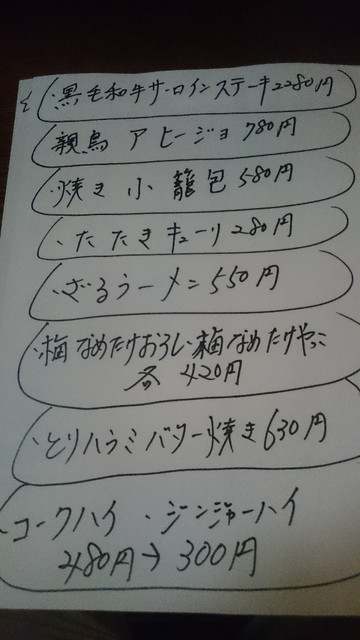 ・黒毛和牛サーロインステーキ2280円
親鳥 アヒージョ 780円
・焼き小籠包580円
・たたきキューリ280円
・ざるラーメン550円
・梅なめたけおろし・梅なめたけやっこ
各 420円
・とりハラミバター焼き630円
・コークハイ ・ジンジャーハイ
480円→300円